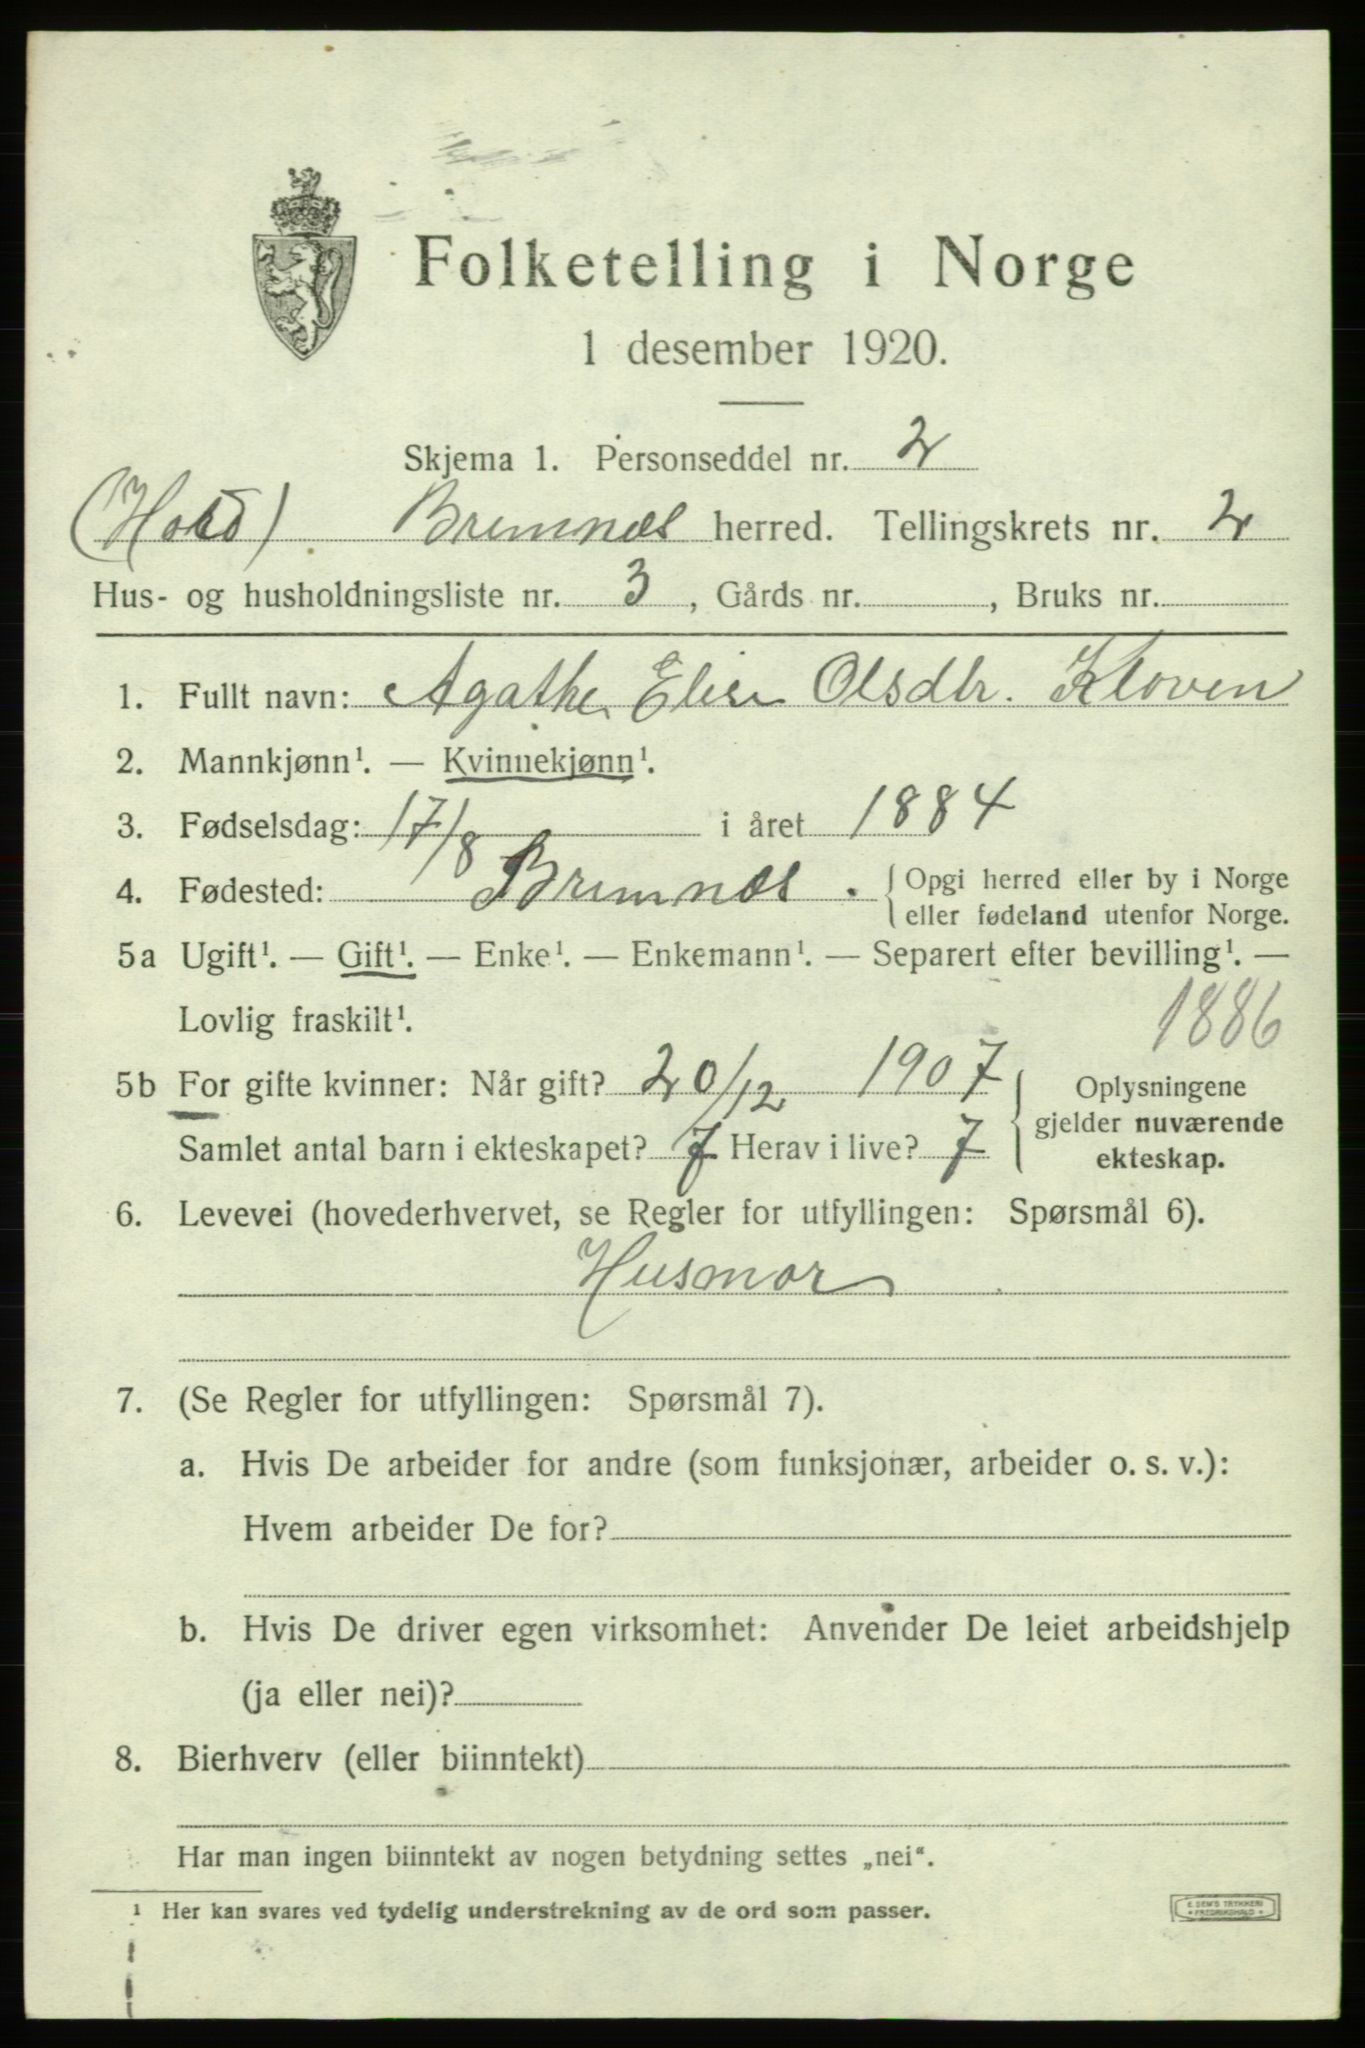 Folketelling i Norge
1 desember 1920.
Skjema 1. Personseddel nr. 2
(Hord) Bremnes herred. Tellingskrets nr. 2
Hus- og husholdningsliste nr. 3, Gårds nr. , Bruks nr.
1. Fullt navn: Agathe Elise Olsdtr. Kloven
2. Mannkjønn¹. — Kvinnekjønn¹.
3. Fødselsdag: 17/8 i året 1884
4. Fødested: Bremnes. {Opgi herred eller by i Norge
eller fødeland utenfor Norge.
5a Ugift¹. — Gift¹. — Enke¹. — Enkemann¹. — Separert efter bevilling¹. —
Lovlig fraskilt¹. 1886
5b For gifte kvinner: Når gift? 20/12 1907 { Oplysningene
gjelder nuværende
Samlet antal barn i ekteskapet? 7 Herav i live? 7
ekteskap.
6. Levevei (hovederhvervet, se Regler for utfyllingen: Spørsmål 6).
Husmor
7. (Se Regler for utfyllingen: Spørsmål 7).
a. Hvis De arbeider for andre (som funksjonær, arbeider o. s. v.):
Hvem arbeider De for?
b. Hvis De driver egen virksomhet: Anvender De leiet arbeidshjelp
(ja eller nei)?
8. Bierhverv (eller biinntekt)
Har man ingen biinntekt av nogen betydning settes „nei“.
¹ Her kan svares ved tydelig understrekning av de ord som passer.
E SEM'S TRYKKERI
• FREDRIKSHALD •